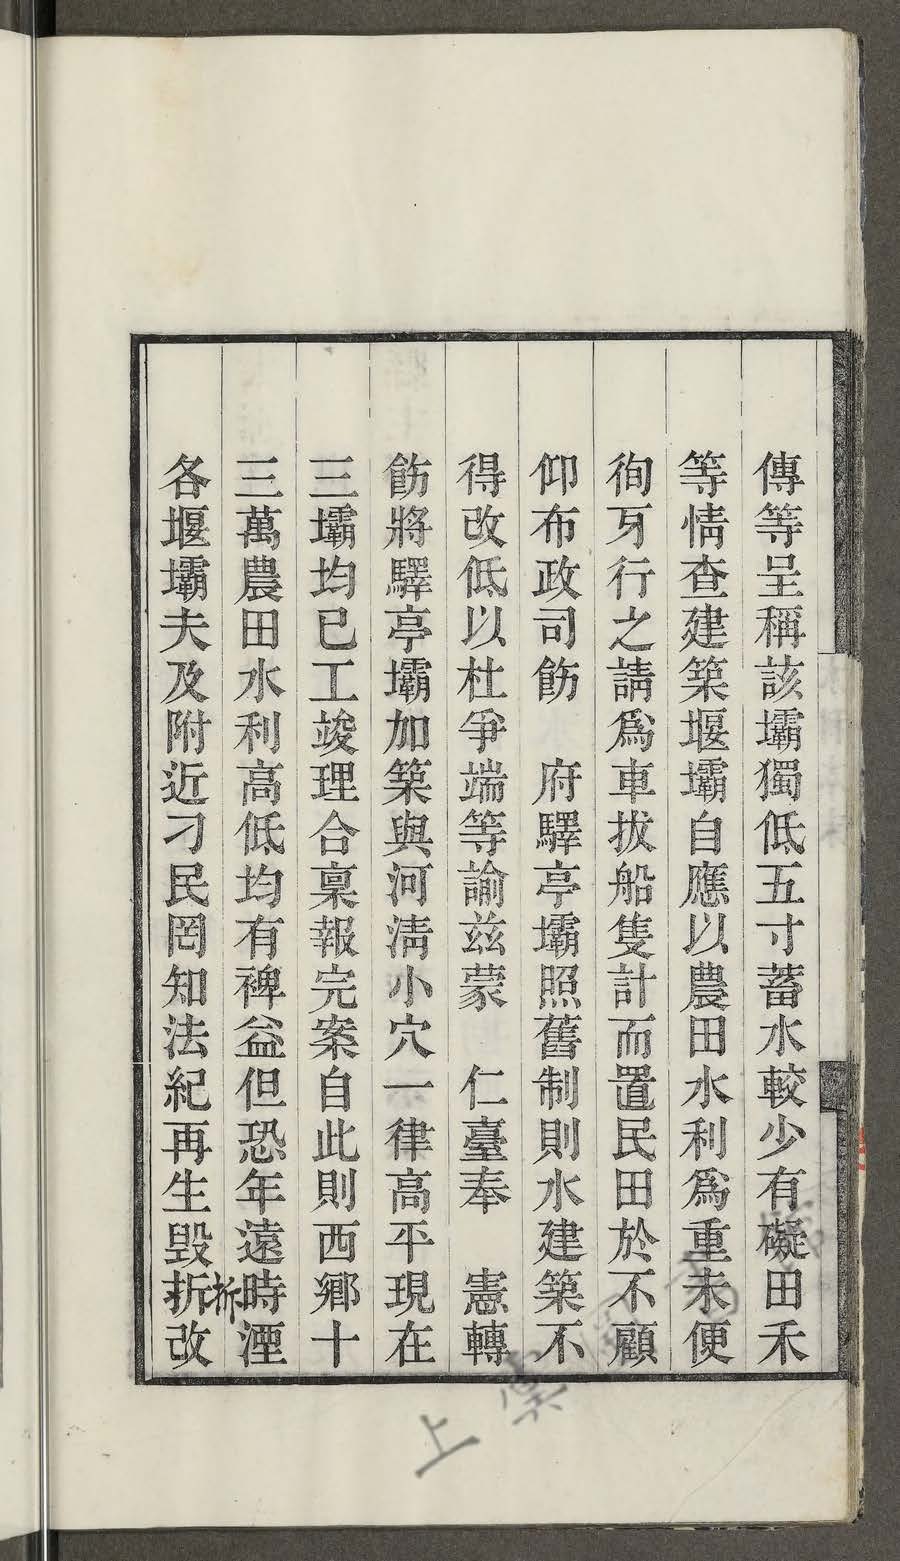 傳等呈稱該壩獨低五寸蓄水較少有礙田禾
等情查建築堰壩自應以農田水利爲重未便
徇牙行之請爲車拔船隻計而置民田於不顧
仰布政司飭　府驛亭壩照舊制則水建築不
得改低以杜爭端等諭兹蒙　仁臺奉　憲轉
飭將驛亭壩加築與河淸小穴一律高平現在
三壩均已工竣理合稟報完案自此則西鄉十
三萬農田水利高低均有裨益但恐年遠時湮
各堰壩夫及附近刁民罔知法紀再生毀折改
拆
上